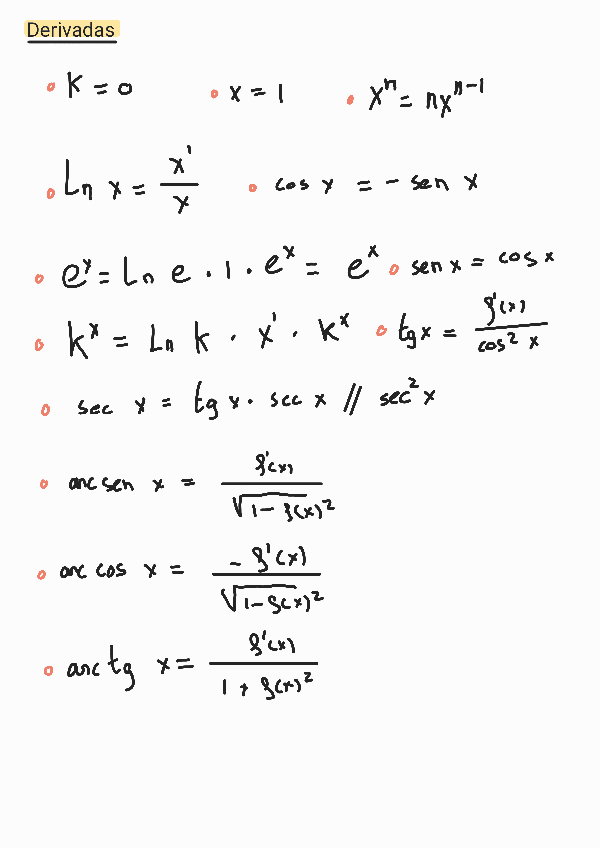 Derivadas
K = 0   x = 1   xⁿ = nxⁿ⁻¹
Ln x = x'/x   cos x = - sen x
eˣ = Ln e · 1 · eˣ = eˣ   sen x = cos x
kˣ = Ln k · x' · kˣ   tg x = f'(x)/cos² x
sec x = tg x · sec x // sec² x
arc sen x = f'(x)/√1 - f(x)²
arc cos x = - f'(x)/√1 - f(x)²
arc tg x = f'(x)/1 + f(x)²